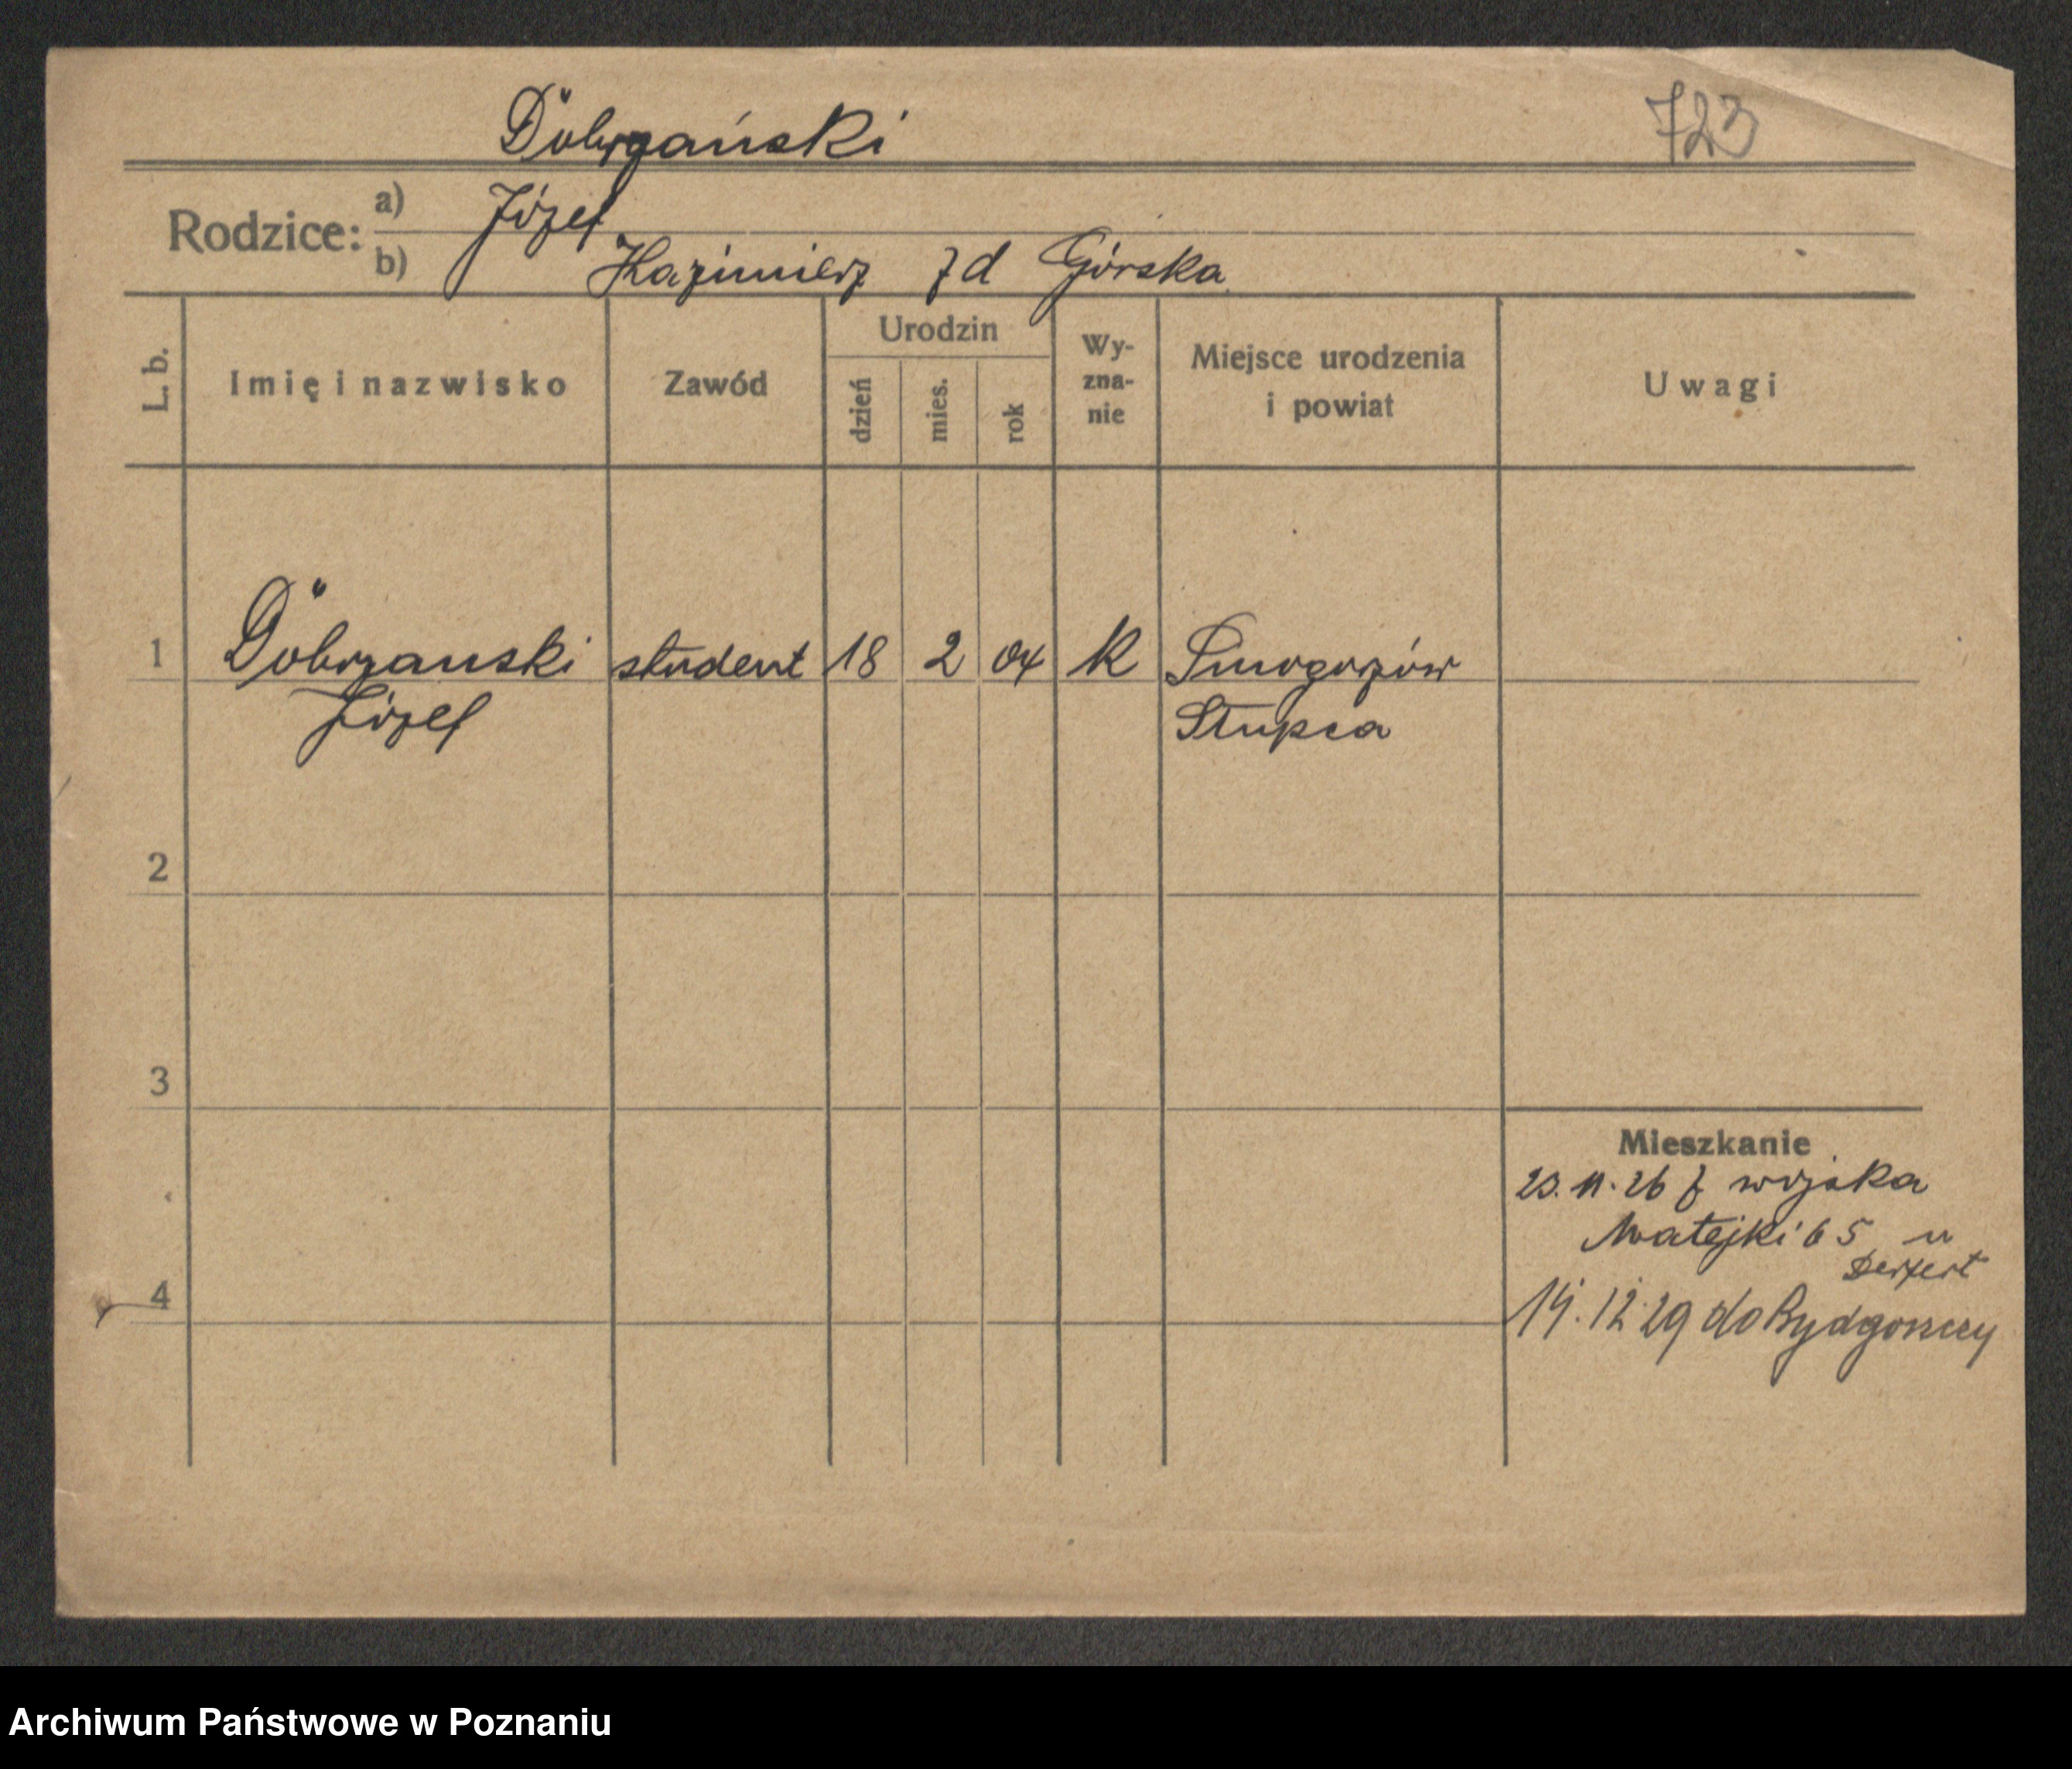 Döbrzański
723
Rodzice:
a) Józef
b) Kazimierz z d Górska
L. b.
Imię i nazwisko
Zawód
Urodzin
dzień
mies.
rok
Wy-
zna-
nie
Miejsce urodzenia
i powiat
Uwagi
1 Döbrzanski student 18 2 04 K Smogorzów
Józef Słupca
2
3
Mieszkanie
23.11.26 z wojska
Matejki 65 u
4
14.12.29 do Bydgoszczy
Archiwum Państwowe w Poznaniu